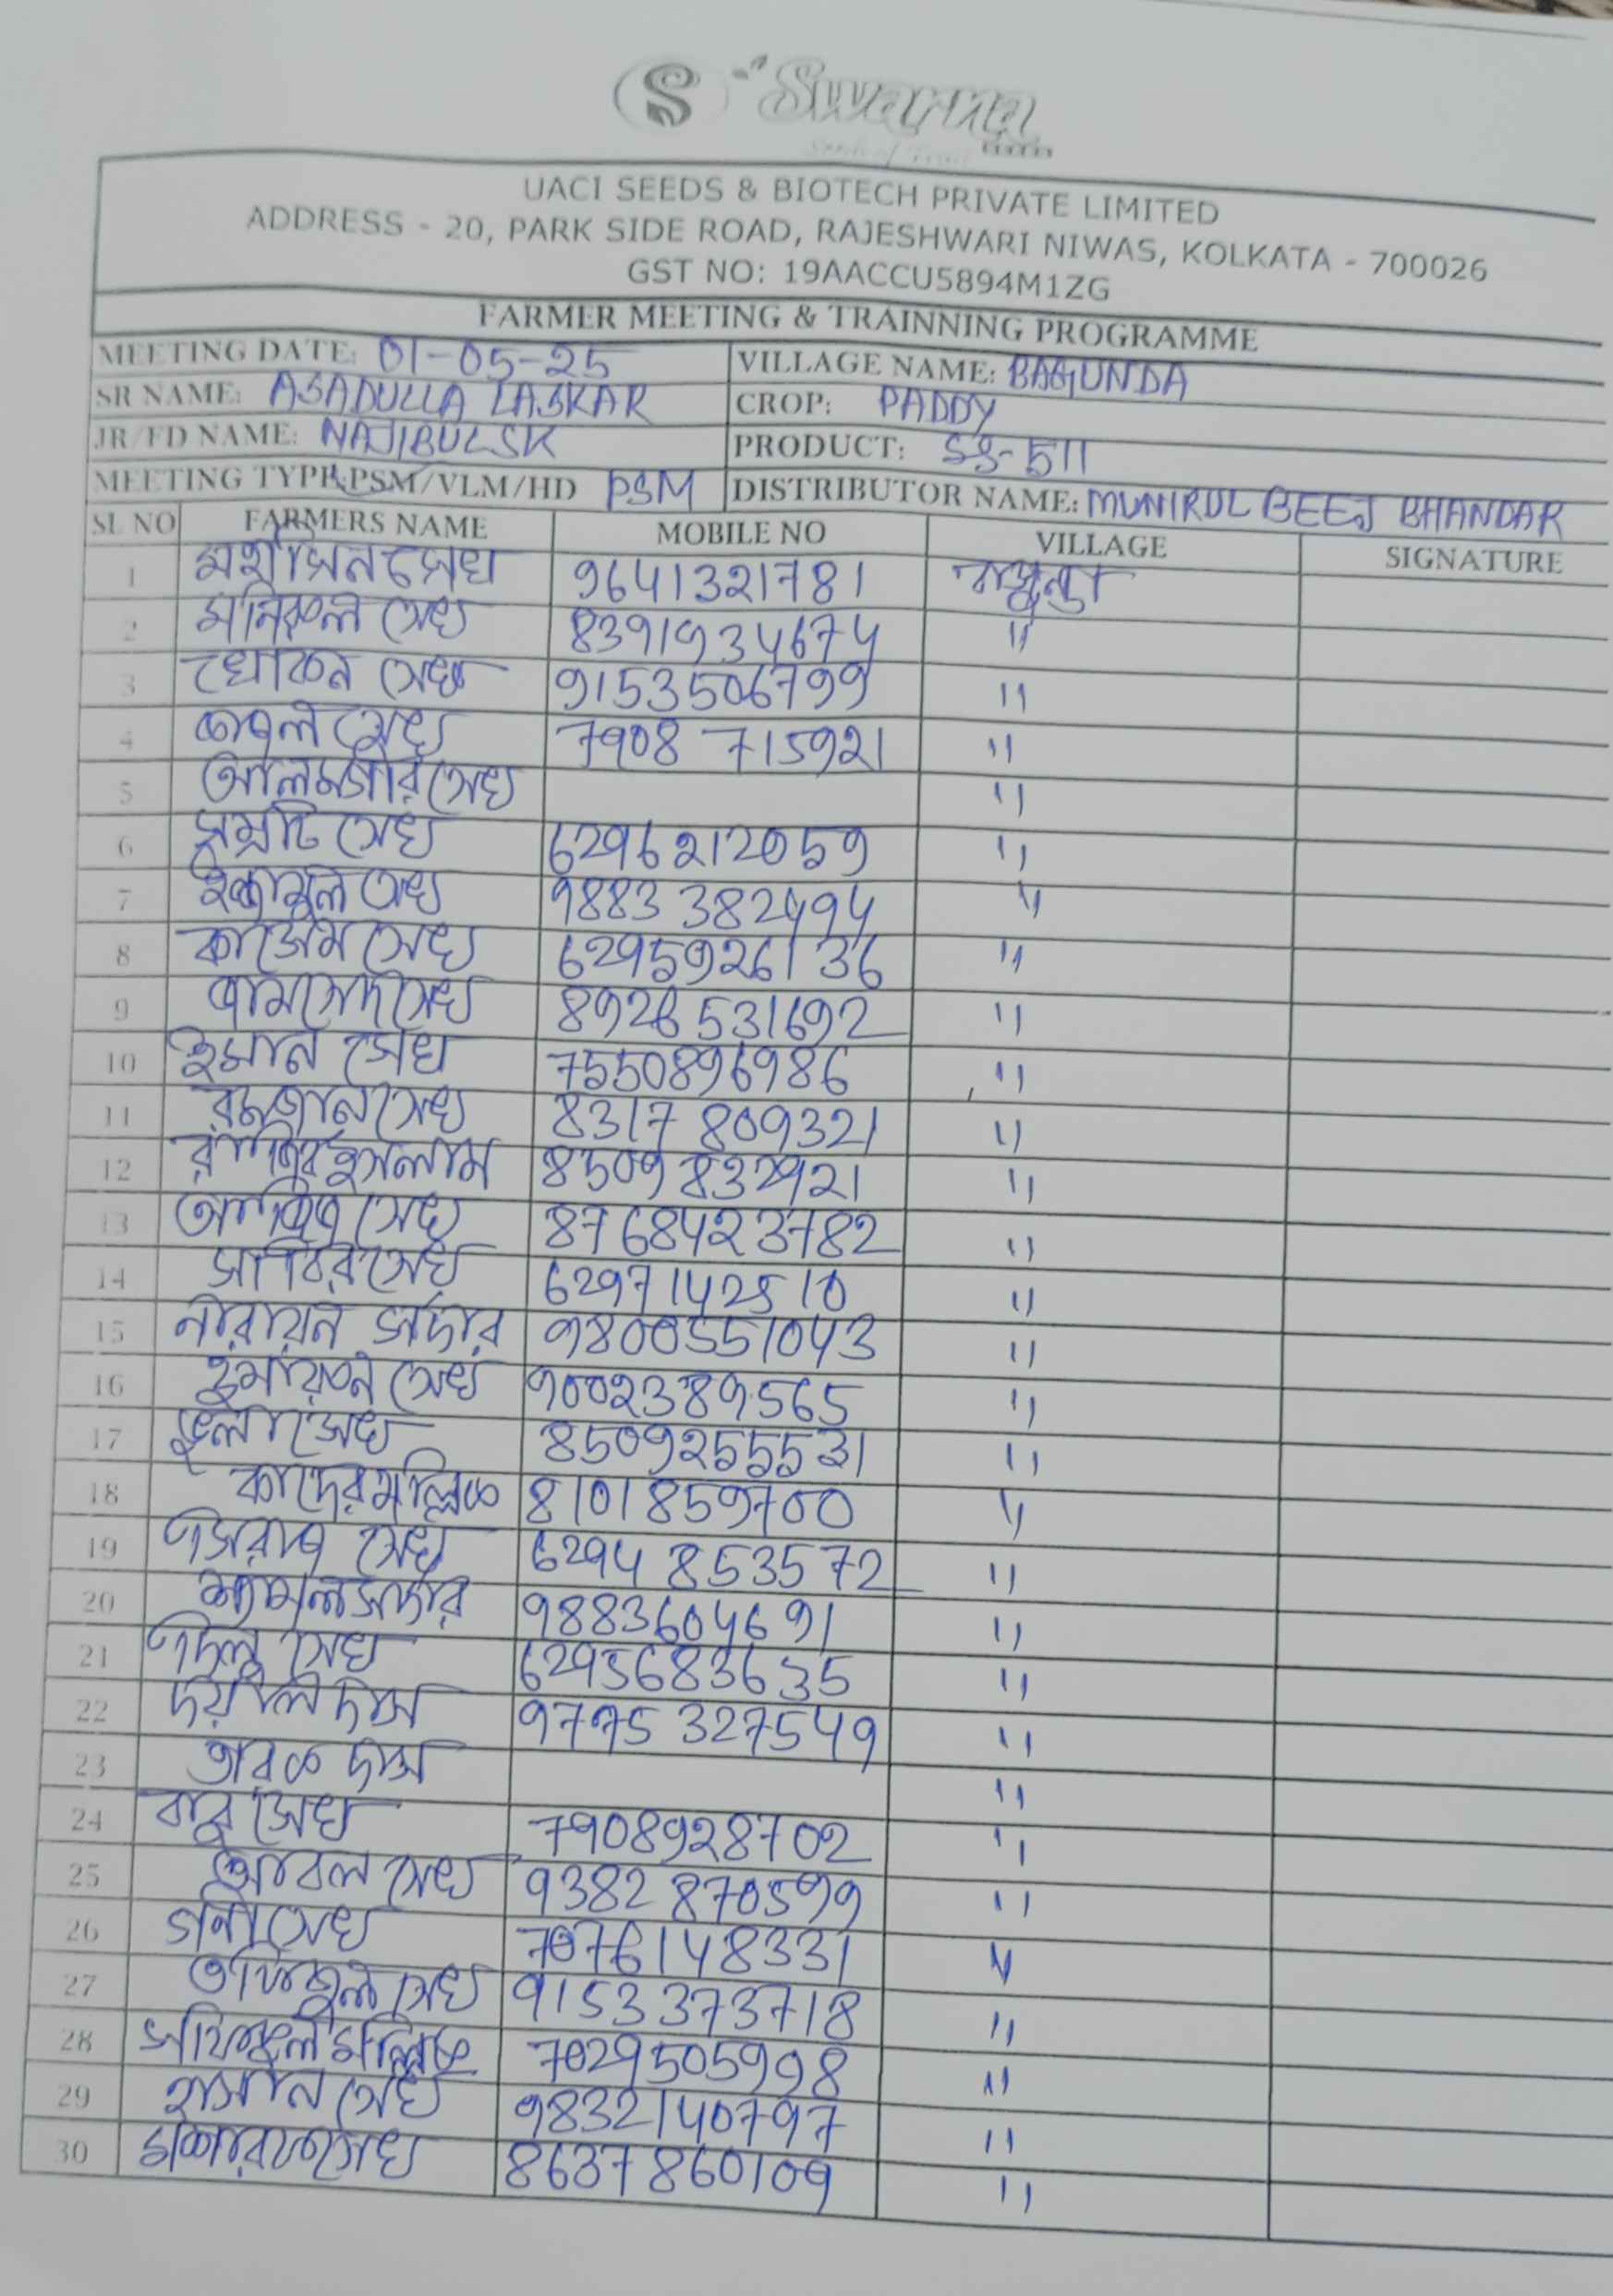 S Swarna
UACI SEEDS & BIOTECH PRIVATE LIMITED
ADDRESS - 20, PARK SIDE ROAD, RAJESHWARI NIWAS, KOLKATA - 700026
GST NO: 19AACCU5894M1ZG
FARMER MEETING & TRAINNING PROGRAMME
MEETING DATE: 01-05-25 VILLAGE NAME: BAGUNDA
SR NAME: ASADULLA LASKAR CROP: PADDY
JR/FD NAME: NAJIBUL SK PRODUCT: SS-511
MEETING TYPE:PSM/VLM/HD PSM DISTRIBUTOR NAME: MUNIRUL BEEJ BHANDAR
SL NO FARMERS NAME MOBILE NO VILLAGE SIGNATURE
1 মর্শীমিন সেখ 9641321781
2 মনিরুল সেখ 8391934674 "
3 খোকন সেখ 9153506799 "
4 সেখ 7908 715921 "
5 আলমগীর সেখ "
6 সম্রাট সেখ 6296212059 "
7 সেখ 9883 382494 "
8 কাজেম সেখ 6295926136 "
9 সেখ 8926531692 "
10 ইমান সেখ 7550896986 "
11 রমজান সেখ 8317 809321 "
12 ইসলাম 8509 832921 "
13 সেখ 8768423782 "
14 সাব্বির সেখ 6297142510 "
15 নারায়ন সর্দার 9800551043 "
16 হুমায়ুন সেখ 9002389565 "
17 ভুলা সেখ 8509255531 "
18 কাদের মল্লিক 8101859700 "
19 সেখ 6294 853572 "
20 শ্যামল সর্দার 9883604691 "
21 দিলু সেখ 6295683635 "
22 দয়াল দাস 9775 327549 "
23 তারক দাস "
24 বাবু সেখ 7908928702 "
25 সেখ 9382 870599 "
26 গনী সেখ 7076148331 "
27 তফিজুল সেখ 9153373718 "
28 মল্লিক 7029505998 "
29 হাসান সেখ 9832140797 "
30 সেখ 8637860109 "